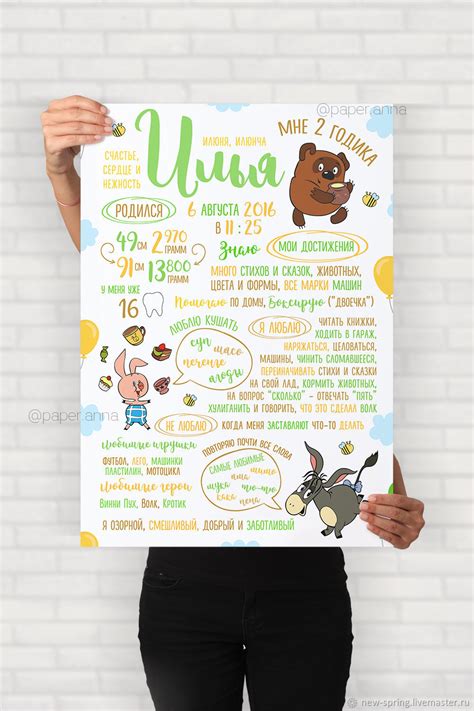 @paper.anna
МНЕ 2 ГОДИКА
ИЛЮНЯ, ИЛЮИЧА
Илья
СЧАСТЬЕ,
СЕРДЦЕ И
НЕЖНОСТЬ
РОДИЛСЯ
6 АВГУСТА 2016
В 11:25
49 СМ 2970 ГРАММ
91 СМ 13800 ГРАММ
У МЕНЯ УЖЕ
16
Знаю
МОИ ДОСТИЖЕНИЯ
МНОГО СТИХОВ И СКАЗОК, ЖИВОТНЫХ,
ЦВЕТА И ФОРМЫ, ВСЕ МАРКИ МАШИН
Помогаю ПО ДОМУ, Боксирую ("ДВОЕЧКА")
ЛЮБЛЮ КУШАТЬ
суп мясо
печенье
ягоды
Я ЛЮБЛЮ
ЧИТАТЬ КНИЖКИ,
ХОДИТЬ В ГАРАЖ,
НАРЯЖАТЬСЯ, ЦЕЛОВАТЬСЯ,
МАШИНЫ, ЧИНИТЬ СЛОМАВШЕЕСЯ,
ПЕРЕИНАЧИВАТЬ СТИХИ И СКАЗКИ
НА СВОЙ ЛАД, КОРМИТЬ ЖИВОТНЫХ,
НА ВОПРОС "СКОЛЬКО" - ОТВЕЧАТЬ "ПЯТЬ"
ХУЛИГАНИТЬ И ГОВОРИТЬ, ЧТО ЭТО СДЕЛАЛ ВОЛК
@paper.anna
НЕ ЛЮБЛЮ
КОГДА МЕНЯ ЗАСТАВЛЯЮТ ЧТО-ТО ДЕЛАТЬ
Любимые игрушки
ФУТБОЛ, ЛЕГО, МАШИНКИ
ПЛАСТИЛИН, МОТОЦИКЛ
Любимые герои
ВИННИ ПУХ, ВОЛК, КРОТИК
ПОВТОРЯЮ ПОЧТИ ВСЕ СЛОВА
САМЫЕ ЛЮБИМЫЕ
Я ОЗОРНОЙ, СМЕШЛИВЫЙ, ДОБРЫЙ И ЗАБОТЛИВЫЙ
new-spring.livemaster.ru